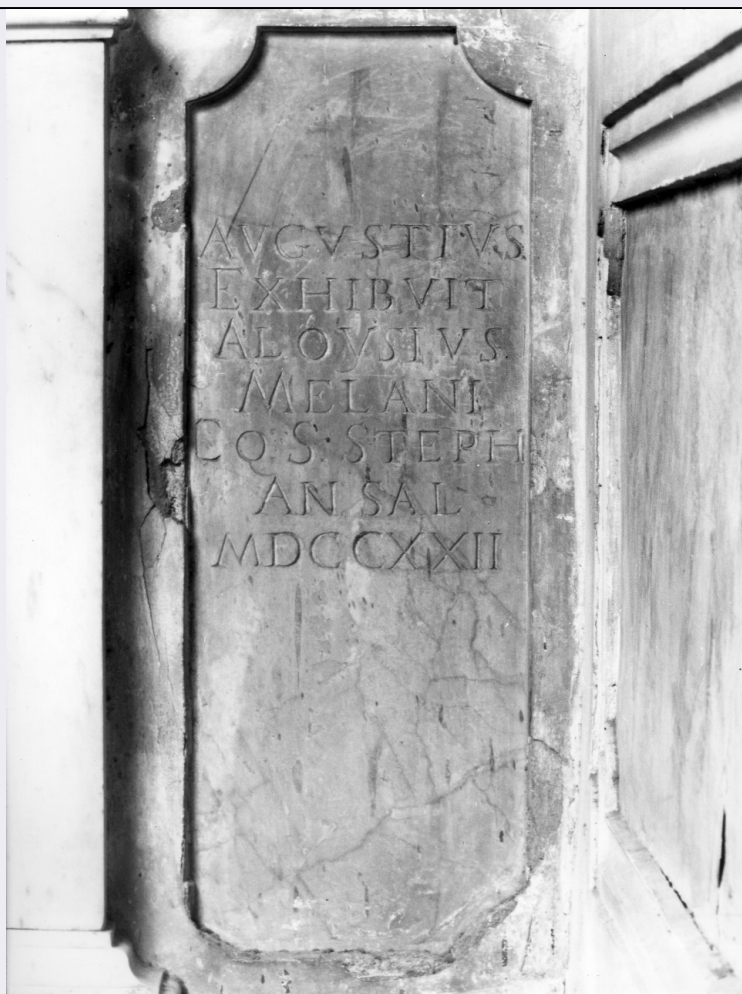 AVGVSTIVS
EXHIBVIT
ALOYSIVS
MELANI
CO S. STEPH
AN SAL
MDCCXXII